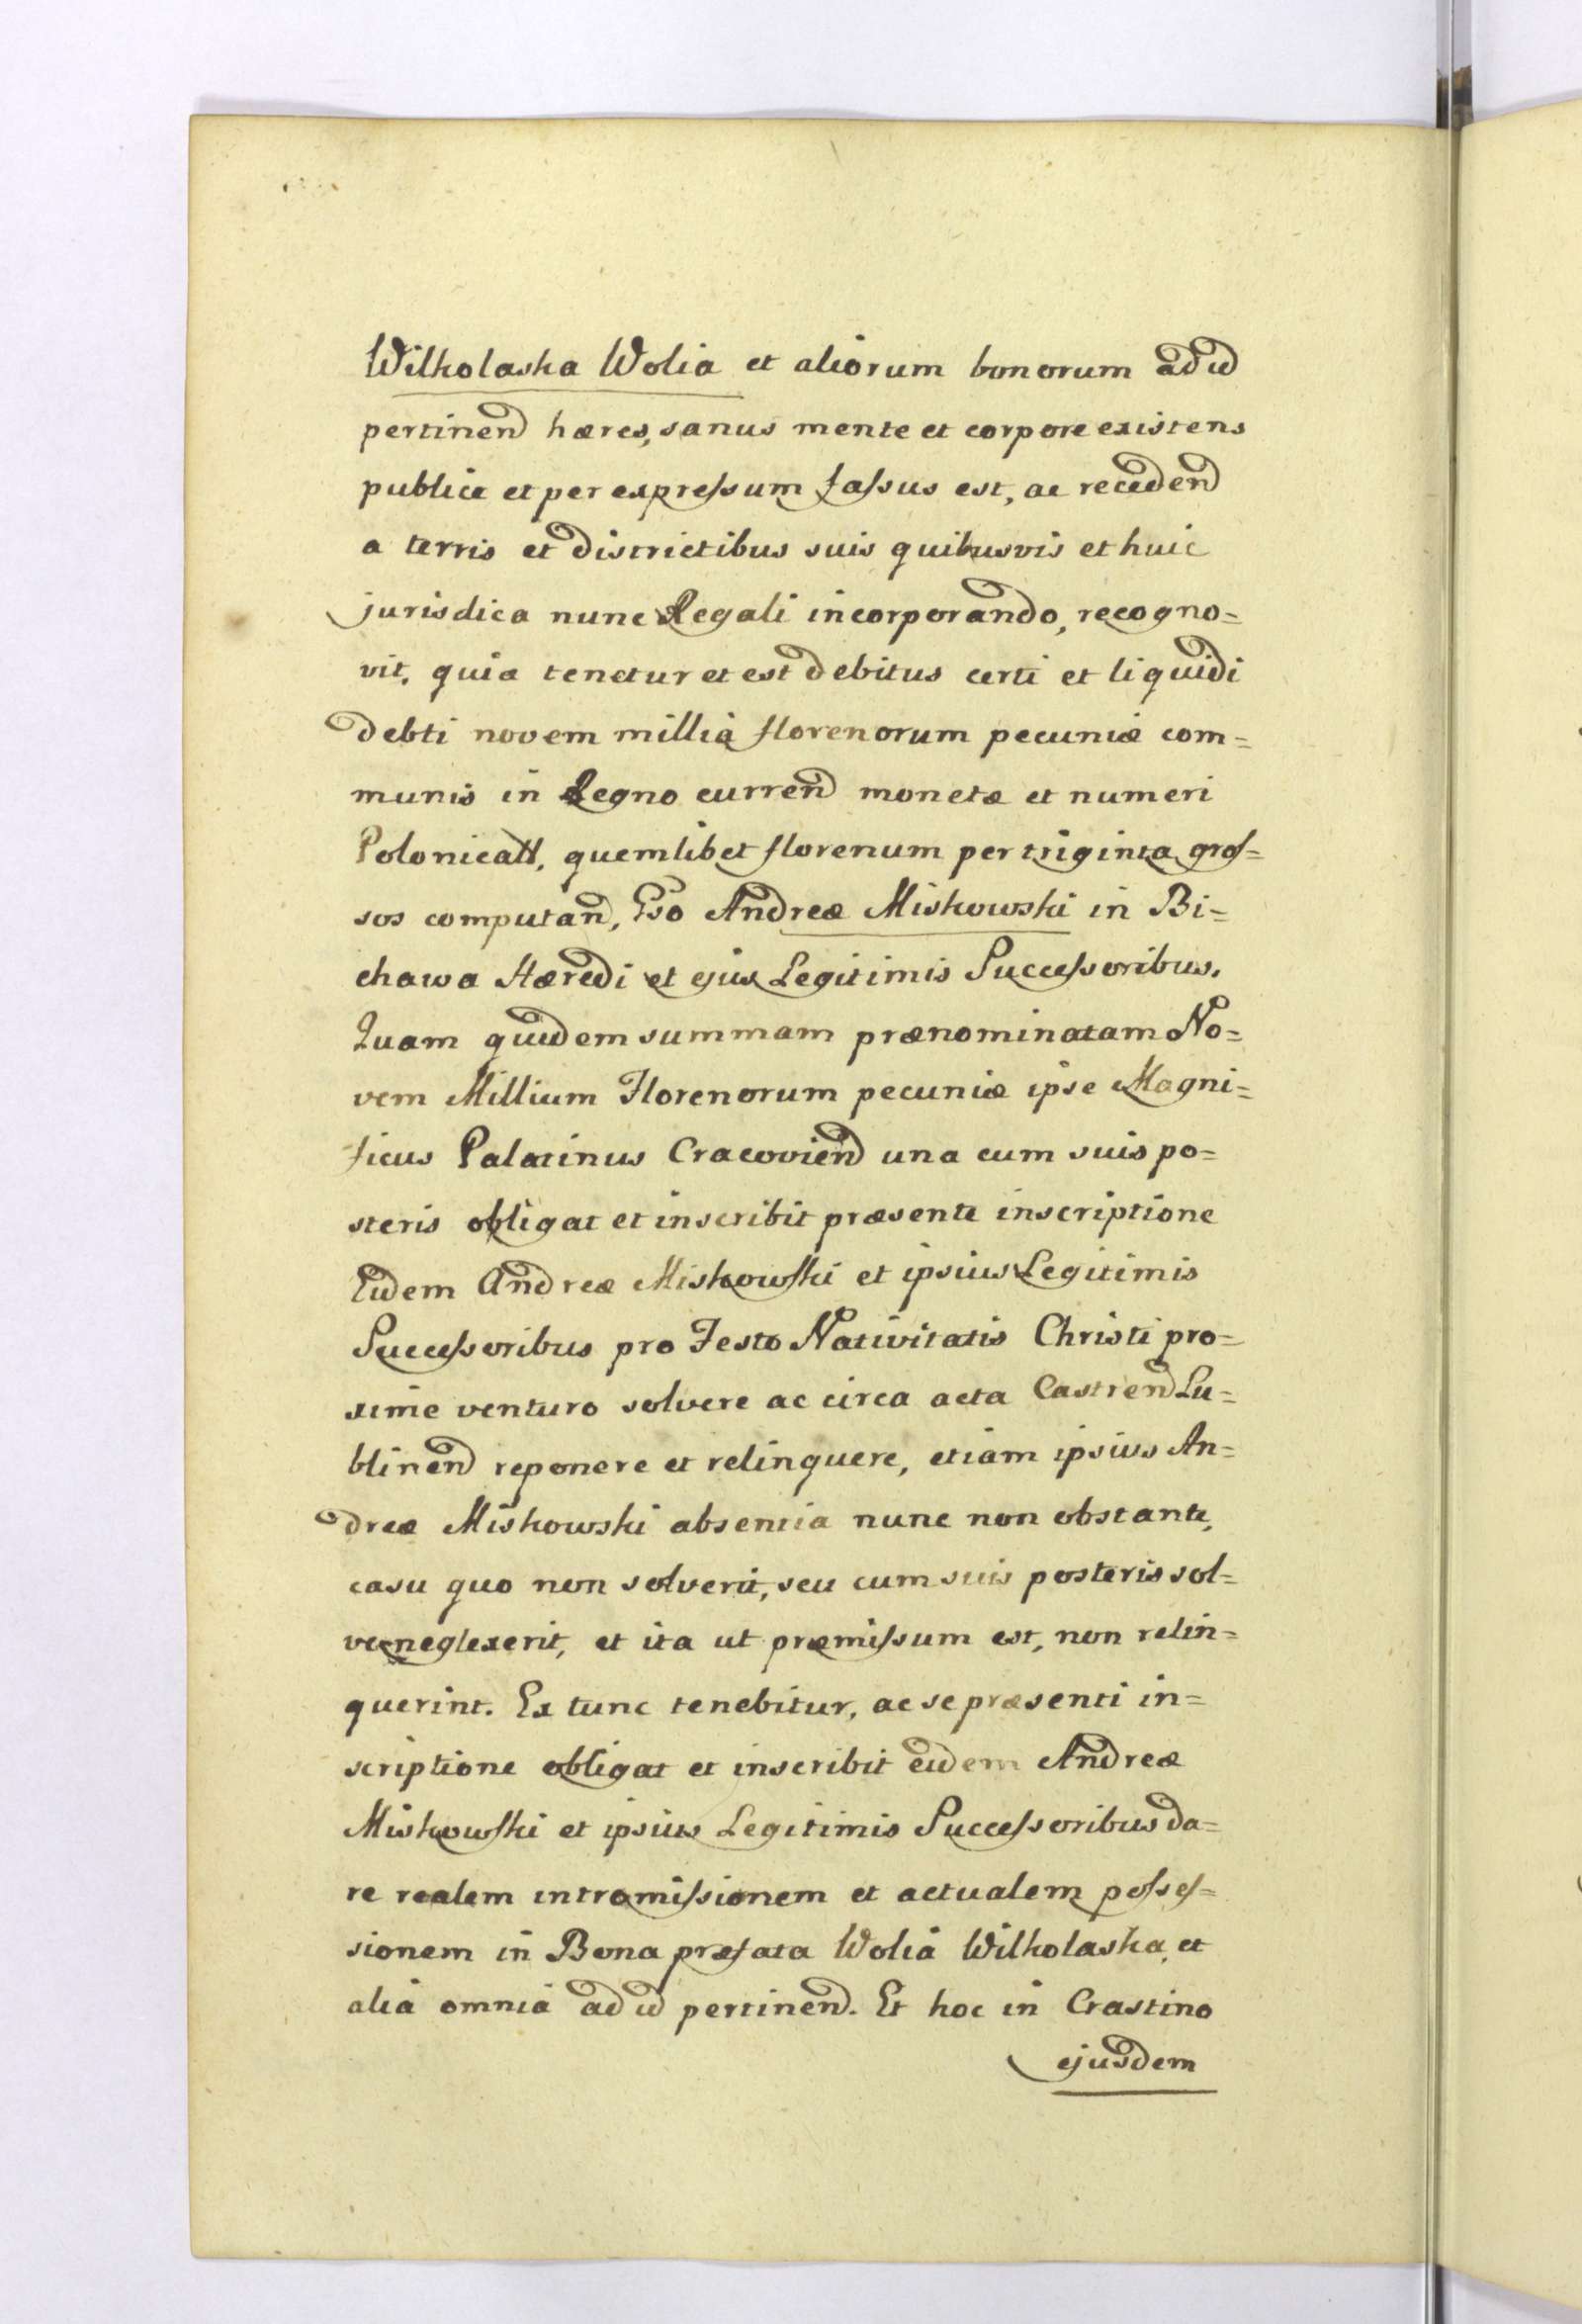 Wilkolaska Wolia et aliorum bonorum ad id
pertinend hæres, sanus mente et corpore existens
publice et per expreſsum faſsus est, ac recedend
a terris et districtibus suis quibusvis et huic
jurisdica nunc Regali incorporando, recogno=
vit, quia tenetur et est debitus certi et liquidi
debti novem millia florenorum pecuniæ com=
munis in Regno currend monetæ et numeri
Polonicall, quemlibet florenum per triginta groſ=
sos computand, Gso Andreæ Miskowski in Bi=
chawa Hæredi et ejus Legitimis Succeſsoribus.
Quam quidem summam prænominatam No=
vem Millium Florenorum pecuniæ ipse Magni=
ficus Palatinus Cracoviend una cum suis po=
steris obligat et inscribit præsente inscriptione
Eidem Andreæ Miskowſki et ipsius Legitimis
Succeſsoribus pro Festo Nativitatis Christi pro=
xime venturo solvere ac circa acta Castrend Lu=
blinend reponere et relinquere, etiam ipsius An=
dreæ Miskowski absentia nunc non obstante,
casu quo non solverit, seu cum suis posteris sol=
ve neglexerit, et ita ut præmiſsum est, non relin=
querint. Ex tunc tenebitur, ac se præsenti in=
scriptione obligat et inscribit eidem Andreæ
Miskowſki et ipsius Legitimis Succeſsoribus da=
re realem intromiſsionem et actualem poſseſ=
sionem in Bona præfata Wolia Wilkolaska, et
alia omnia ad id pertinend. Et hoc in Crastino
ejusdem